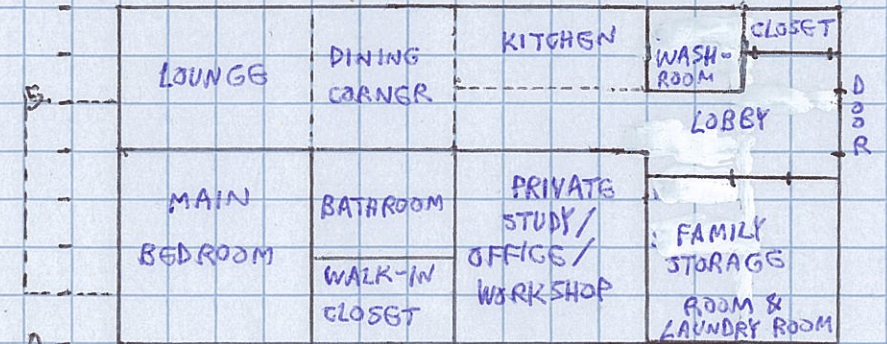 LOUNGE
DINING
CORNER
KITCHEN
WASH-
ROOM
CLOSET
LOBBY
DOOR
MAIN
BEDROOM
BATHROOM
WALK-IN
CLOSET
PRIVATE
STUDY/
OFFICE/
WORKSHOP
FAMILY
STORAGE
ROOM &
LAUNDRY ROOM